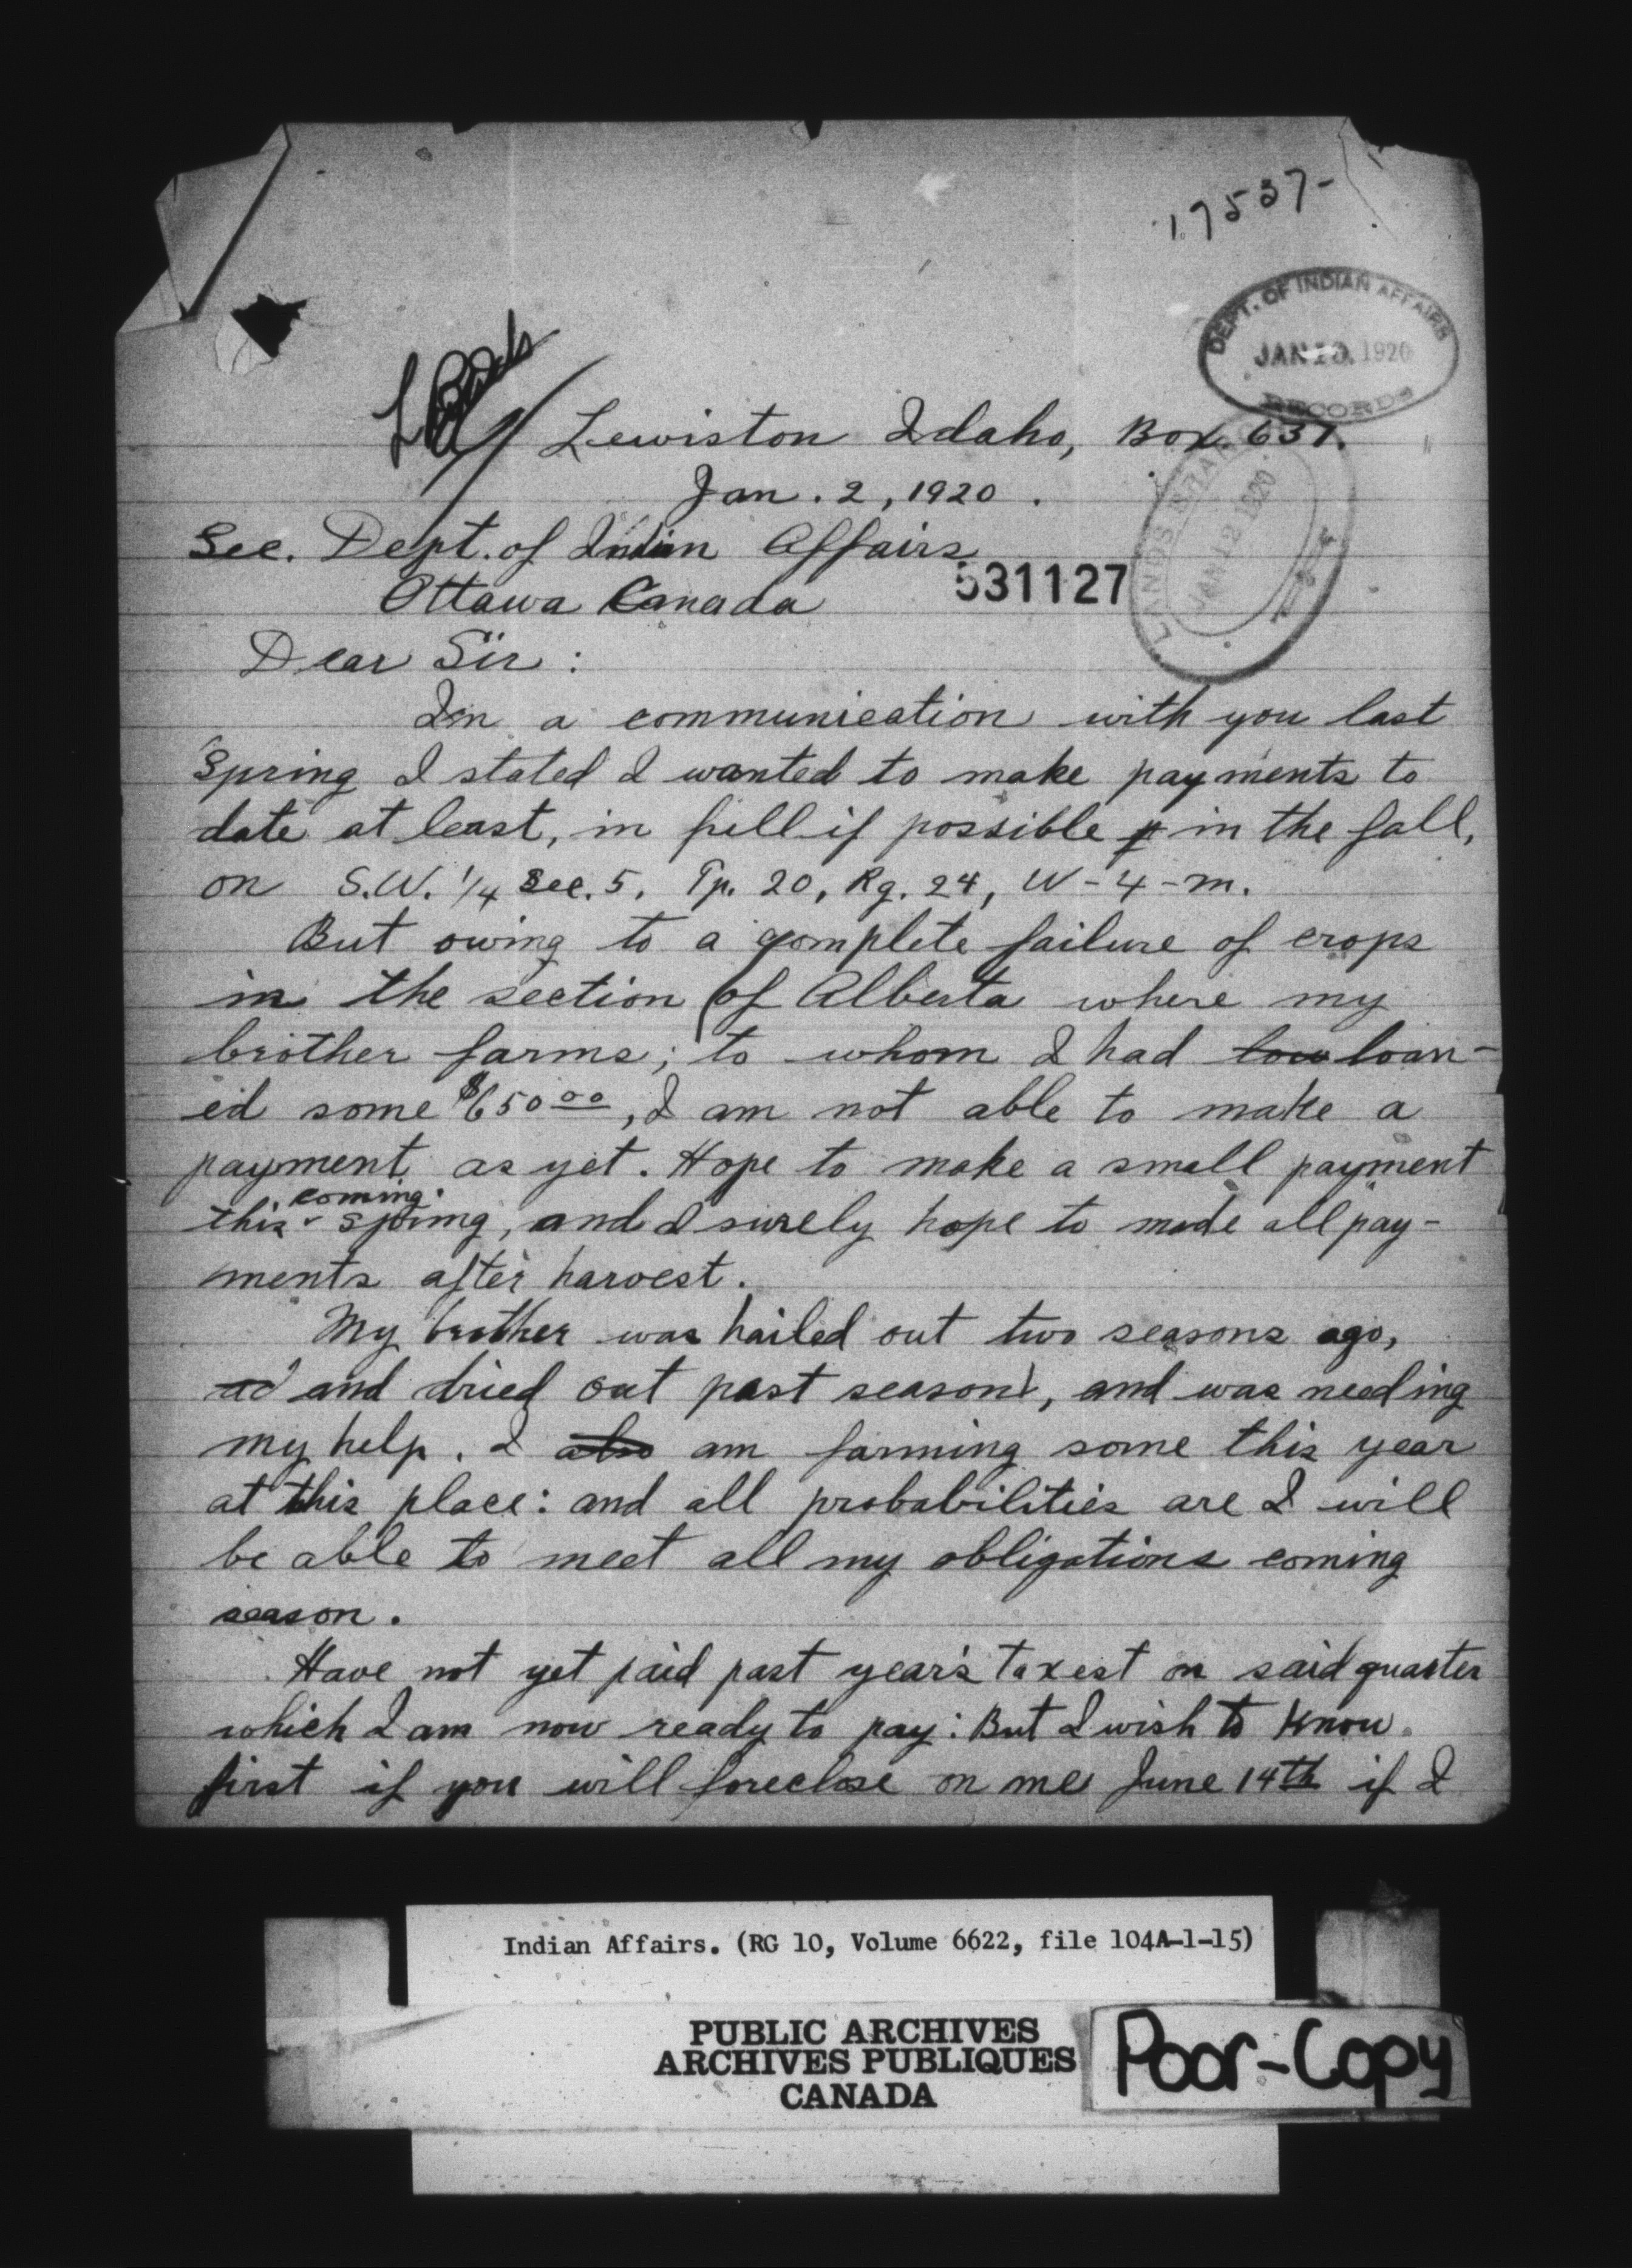 17537-
DEPT. OF INDIAN AFFAIRS
JAN 10. 1920
RECORDS
Lewiston Idaho, Box 637.
Jan. 2, 1920.
Sec. Dept. of Indian Affairs
Ottawa Canada
531127
LANDS BRANCH
JAN 12 1920
Dear Sir:
In a communication with you last
Spring I stated I wanted to make payments to
date at least, in full if possible in the fall,
on S.W. 1/4 Sec. 5, Tp. 20, Rg. 24, W-4-m.
But owing to a complete failure of crops
in the section of Alberta where my
brother farms; to whom I had low loan-
ed some $650 00, I am not able to make a
payment as yet. Hope to make a small payment
this coming spring, and I surely hope to made all pay-
ments after harvest.
My brother was hailed out two seasons ago,
ad and dried out past season, and was needing
my help. I also am farming some this year
at this place: and all probabilities are I will
be able to meet all my obligations coming
season.
Have not yet paid past year's taxest on said quarter
which I am now ready to pay: But I wish to know
first if you will foreclose on me June 14th if I
Indian Affairs. (RG 10, Volume 6622, file 104A-1-15)
PUBLIC ARCHIVES
ARCHIVES PUBLIQUES
CANADA
Poor-Copy